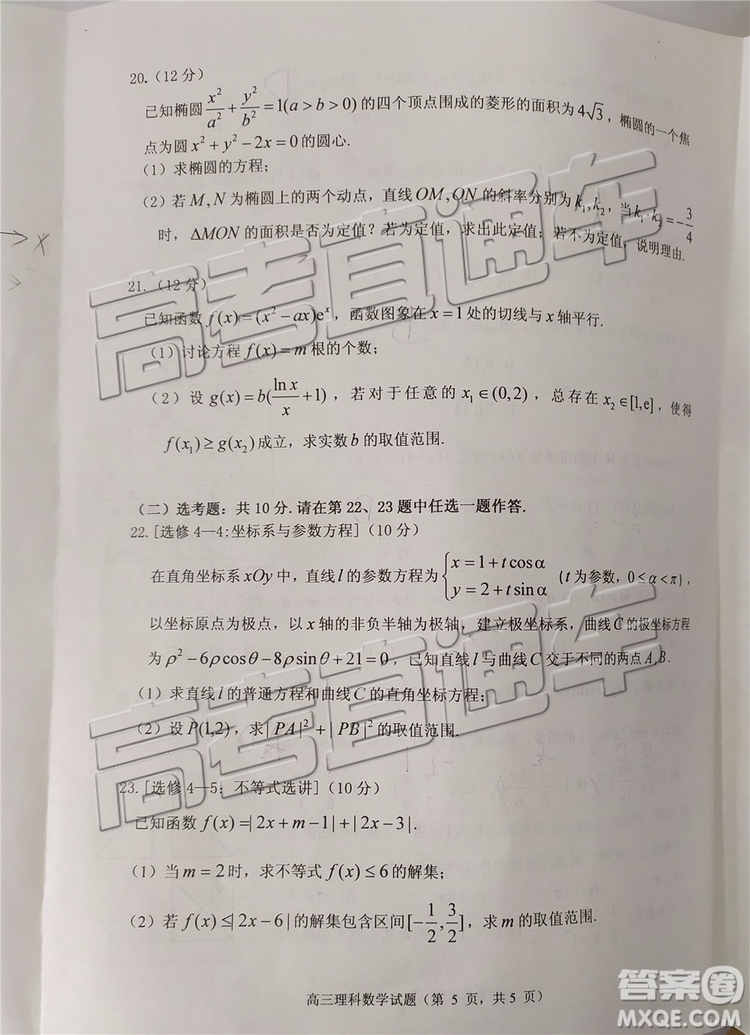 20.（12分）
已知椭圆 x²/a² + y²/b² = 1(a > b > 0) 的四个顶点围成的菱形的面积为 4√3，椭圆的一个焦
点为圆 x² + y² − 2x = 0 的圆心.
（1）求椭圆的方程；
（2）若 M, N 为椭圆上的两个动点，直线 OM, ON 的斜率分别为 k₁, k₂，当 k₁·k₂ = −3/4
时，ΔMON 的面积是否为定值？若为定值，求出此定值；若不为定值，说明理由.
21.（12分）
已知函数 f(x) = (x² − ax)eˣ，函数图象在 x = 1 处的切线与 x 轴平行.
（1）讨论方程 f(x) = m 根的个数；
（2）设 g(x) = b(ln x/x + 1)，若对于任意的 x₁ ∈ (0,2)，总存在 x₂ ∈ [1,e]，使得
f(x₁) ≥ g(x₂) 成立，求实数 b 的取值范围.
（二）选考题：共 10 分. 请在第 22、23 题中任选一题作答.
22.[选修 4—4:坐标系与参数方程]（10 分）
在直角坐标系 xOy 中，直线 l 的参数方程为 { x = 1 + t cos α
y = 2 + t sin α （t 为参数，0 ≤ α < π），
以坐标原点为极点，以 x 轴的非负半轴为极轴，建立极坐标系，曲线 C 的极坐标方程
为 ρ² − 6ρcosθ − 8ρsinθ + 21 = 0，已知直线 l 与曲线 C 交于不同的两点 A,B.
（1）求直线 l 的普通方程和曲线 C 的直角坐标方程；
（2）设 P(1,2)，求 |PA|² + |PB|² 的取值范围.
23.[选修 4—5：不等式选讲]（10 分）
已知函数 f(x) =| 2x + m − 1 | + | 2x − 3 |.
（1）当 m = 2 时，求不等式 f(x) ≤ 6 的解集；
（2）若 f(x) ≤| 2x − 6 | 的解集包含区间 [−1/2, 3/2]，求 m 的取值范围.
高三理科数学试题（第 5 页，共 5 页）
高考直通车
高考直通车
答案圈
MXQE.COM